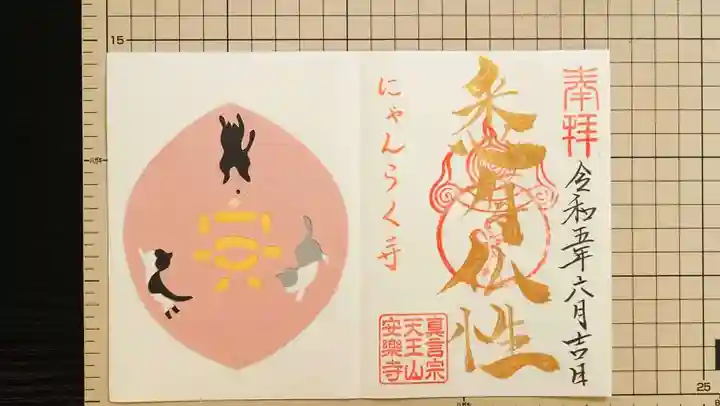 奉拝
令和五年六月吉日
悉有仏性
にゃんらく寺
真言宗
天王山
安樂寺
15
25